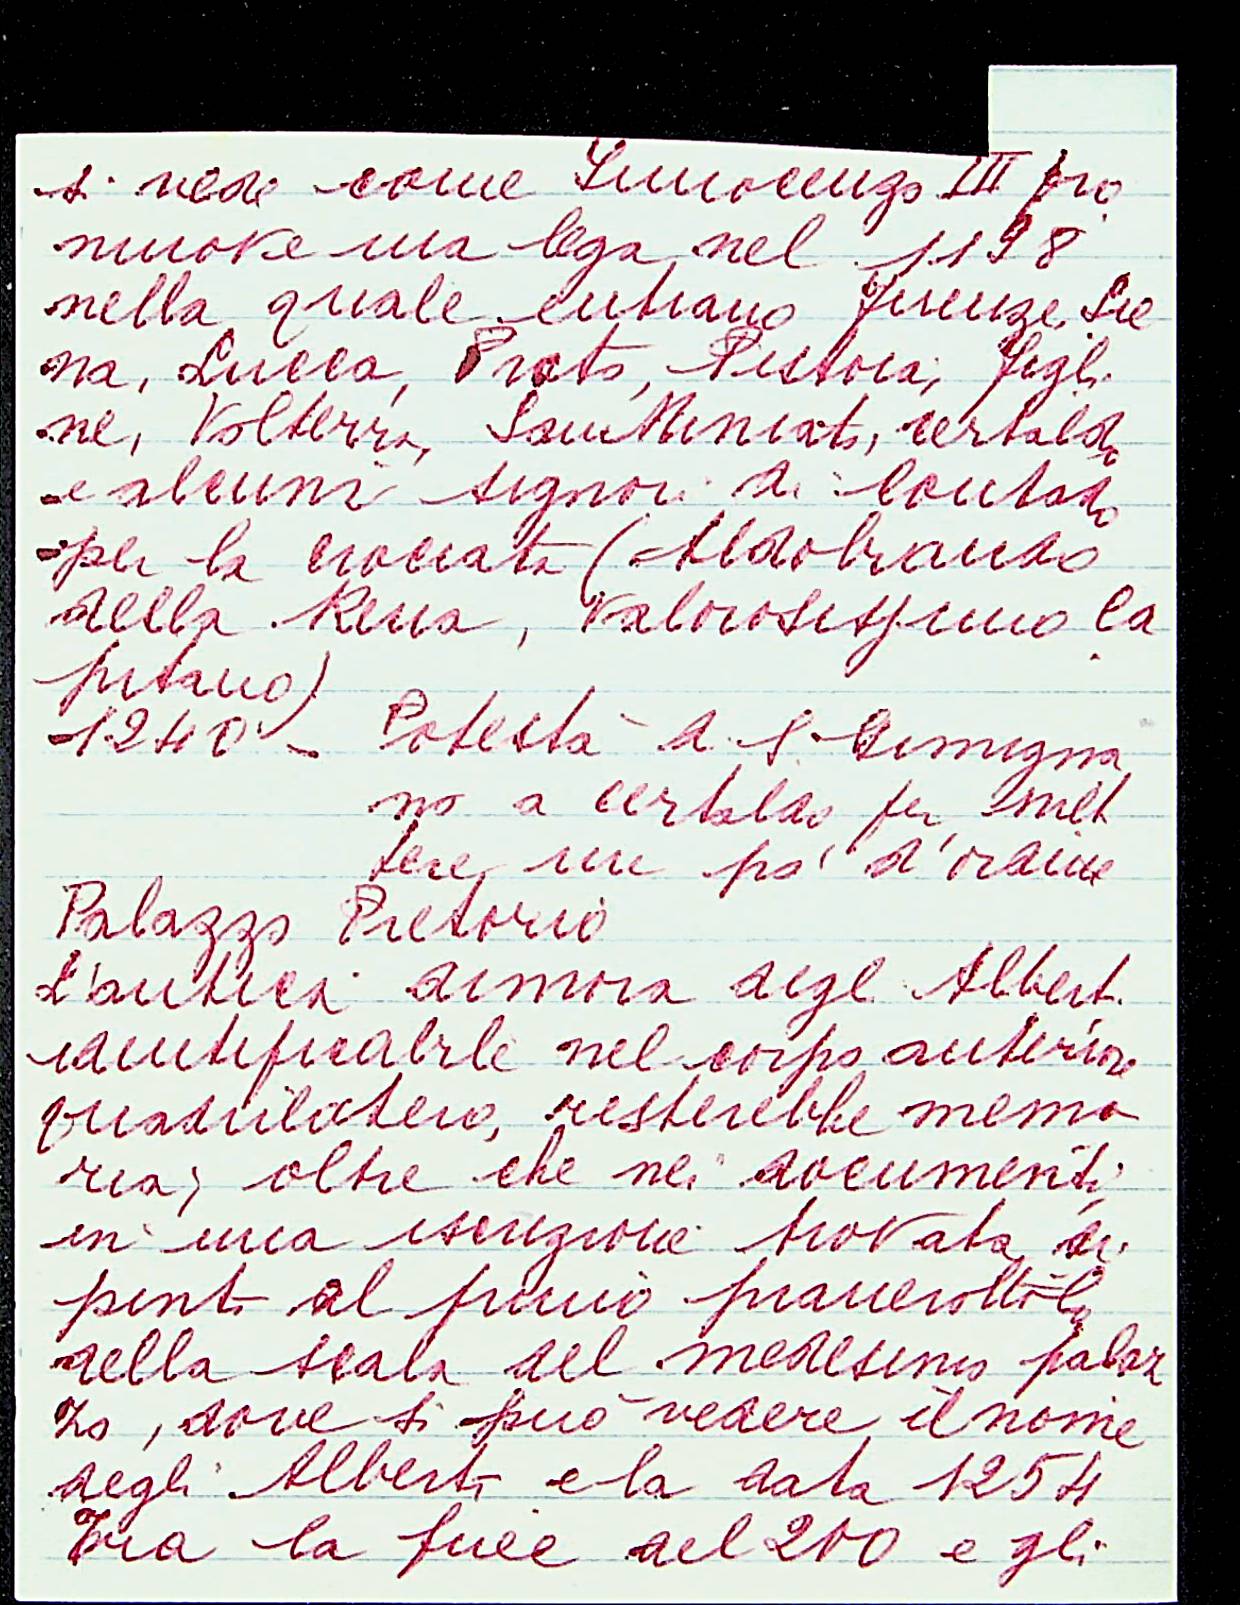 si vede come Innocenzo III pro
muove una lega nel 1198
nella quale entrano Firenze, Sie
na, Lucca, Prato, Pistoia, Figli
ne, Volterra, San Miniato, certaldo
e alcuni signori di contado
per la crociata (Aldobrando
della Rena, Valorosissimo Ca
pitano)
1240 - Potestà di S. Gimigna
no a certaldo per met
tere un po' d'ordine
Palazzo Pretorio
L'antica dimora degl Alberti
identificabile nel corpo anteriore
quadrilatero, resterebbe memo
ria, oltre che nei documenti,
in una iscrizione trovata di
pinta al primo pianerottolo
della scala del medesimo palaz
zo, dove si può vedere il nome
degli Alberti e la data 1254
Tra la fine del 200 e gli